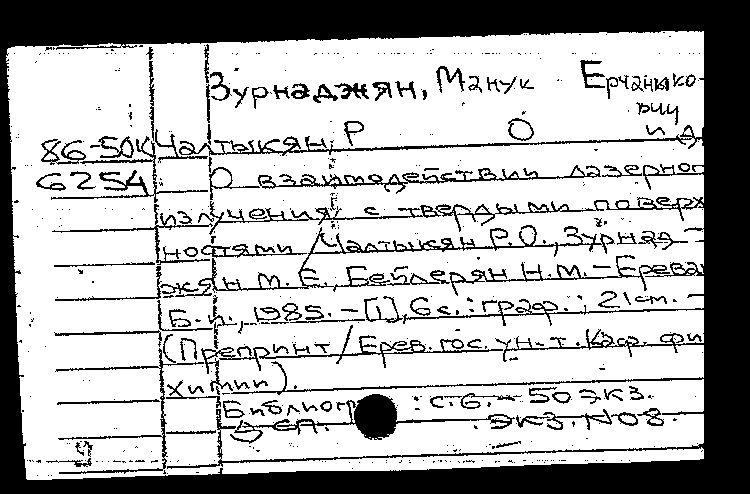 Зурнаджян, Манук Ерчанико-
вич
86-50К Чалтыкян, Р О и др
6254 О взаимодействии лазерног
излучения с твердыми поверх
ностями / Чалтыкян Р.О., Зурнад-
жян М. Е., Бейлерян Н.М. – Ереван
Б.и., 1985. – [1], 6 с. : граф. ; 21 см. –
(Препринт / Ерев. гос. ун-т. Каф. физ
химии).
Библиогр : с. 6. – 50 экз.
экз. N08.